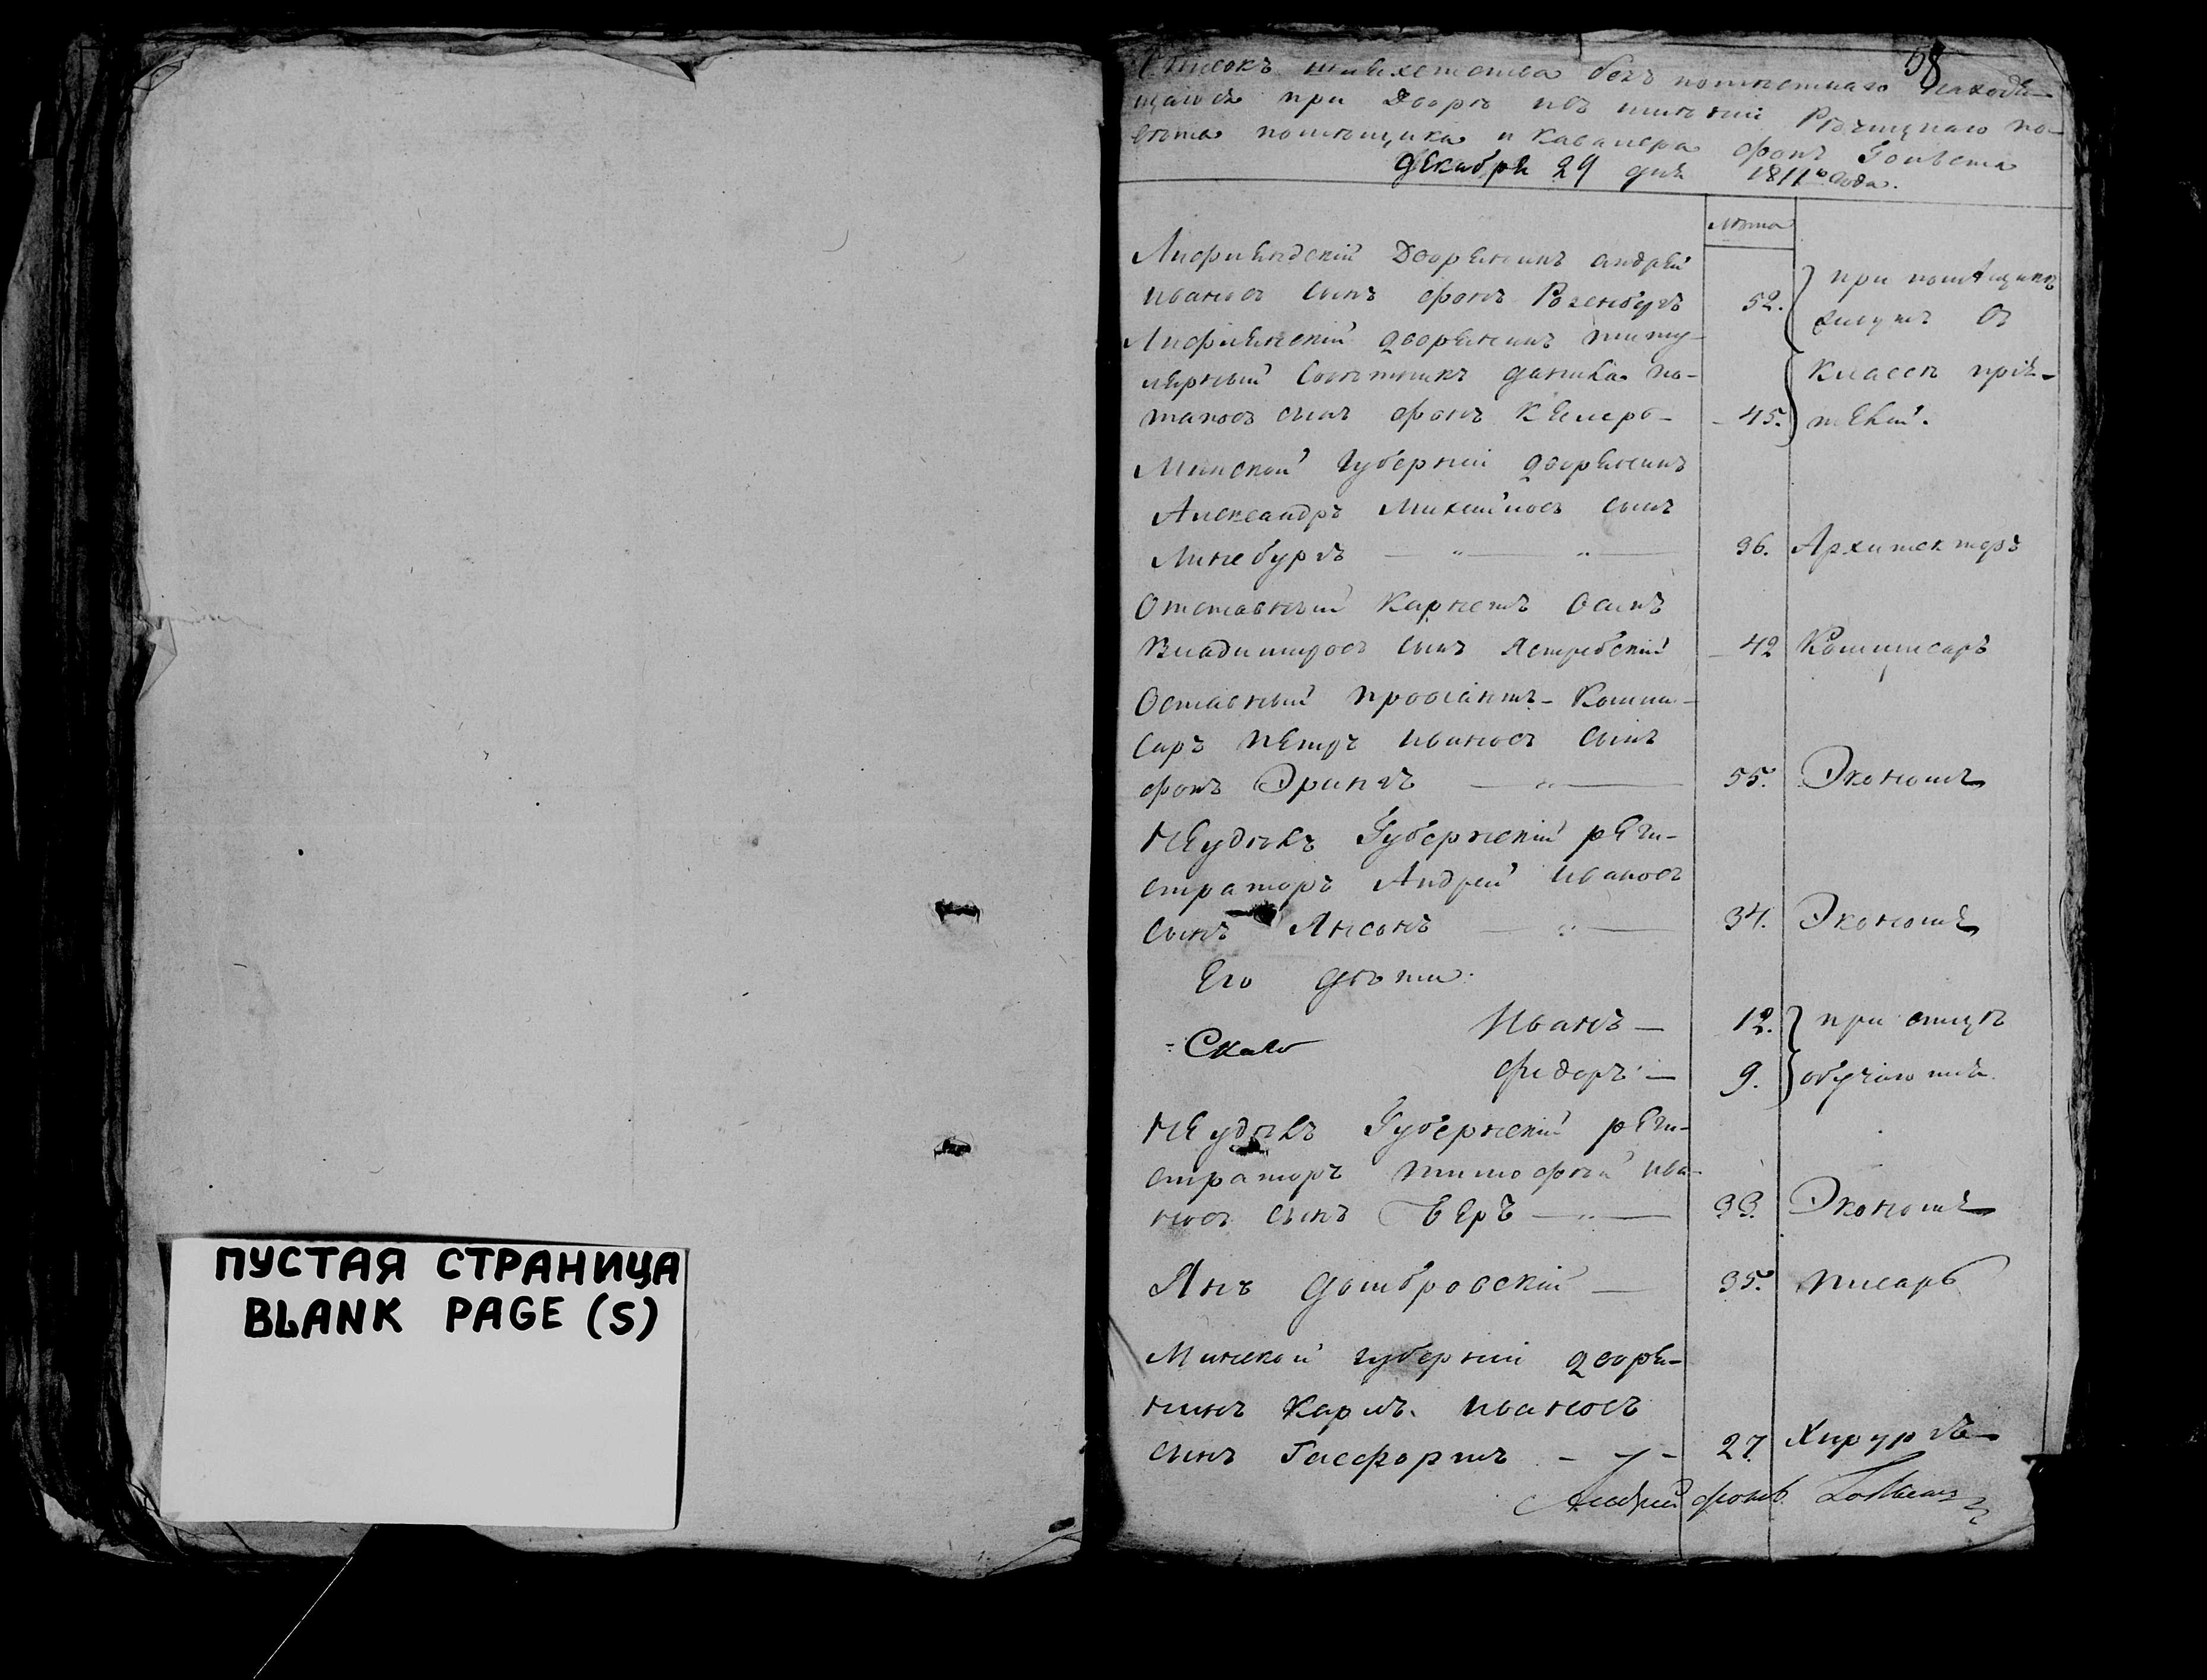 ПУСТАЯ СТРАНИЦА
BLANK PAGE (S)
58
Список шляхетства безъ поместнаго находя-
щагося при Дворе въ имении Речицкаго по-
вета помещика и Кавалера фонъ Гольста
Декабря 29 дня 1811го года.
лета
Лифляндский Дворянинъ андрей
Ивановъ Сынъ фонъ Розенбергъ 52. при помещике
живутъ въ
Лифлянский дворянинъ титу-
лярный Советникъ данила По- Классе прия-
таповъ сынъ фонъ - 45. телей.
Минской Губернии дворянинъ
Александръ Михайловъ Сынъ
Линебургъ 36. Архитекторъ
Отставный Карнетъ Осипъ
Владимировъ Сынъ Ястребский 42 Коммисаръ
Оставный провиантъ-Комми-
Саръ Петръ Ивановъ Сынъ
фонъ Эрингъ 55. Экономъ
Губернский реги-
страторъ Андрей Ивановъ
Сынъ Янсонъ 34. Экономъ
Его дети:
Иванъ — 12. при отце
Федоръ — 9. обучаются.
Губернский реги-
страторъ Тимофей Ива-
новъ Сынъ Беръ 33. Экономъ
Янъ Домбровский — 35. писарь
Минской губернии дворя-
нинъ Карлъ Ивановъ
Сынъ Гасфортъ 27. Хирургъ
Андрей фонъ